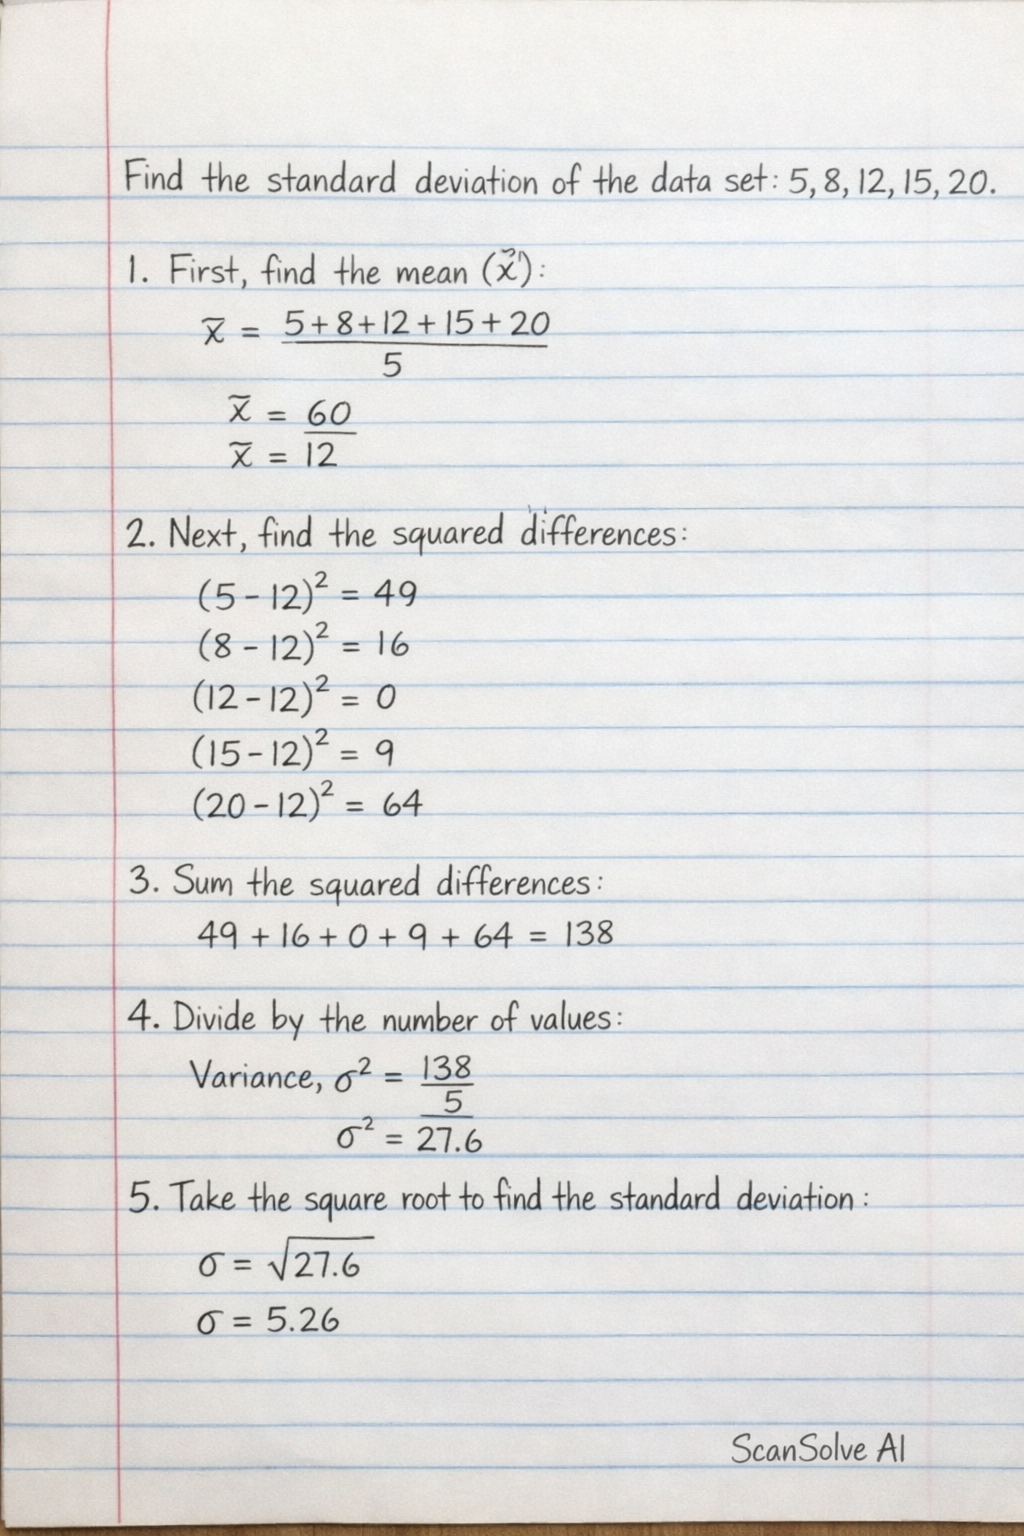 Find the standard deviation of the data set: 5, 8, 12, 15, 20.
1. First, find the mean (x̄):
x̄ = 5+8+12+15+20
5
x̄ = 60
x̄ = 12
2. Next, find the squared differences:
(5 - 12)² = 49
(8 - 12)² = 16
(12 - 12)² = 0
(15 - 12)² = 9
(20 - 12)² = 64
3. Sum the squared differences:
49 + 16 + 0 + 9 + 64 = 138
4. Divide by the number of values:
Variance, σ² = 138
5
σ² = 27.6
5. Take the square root to find the standard deviation:
σ = √27.6
σ = 5.26
ScanSolve AI